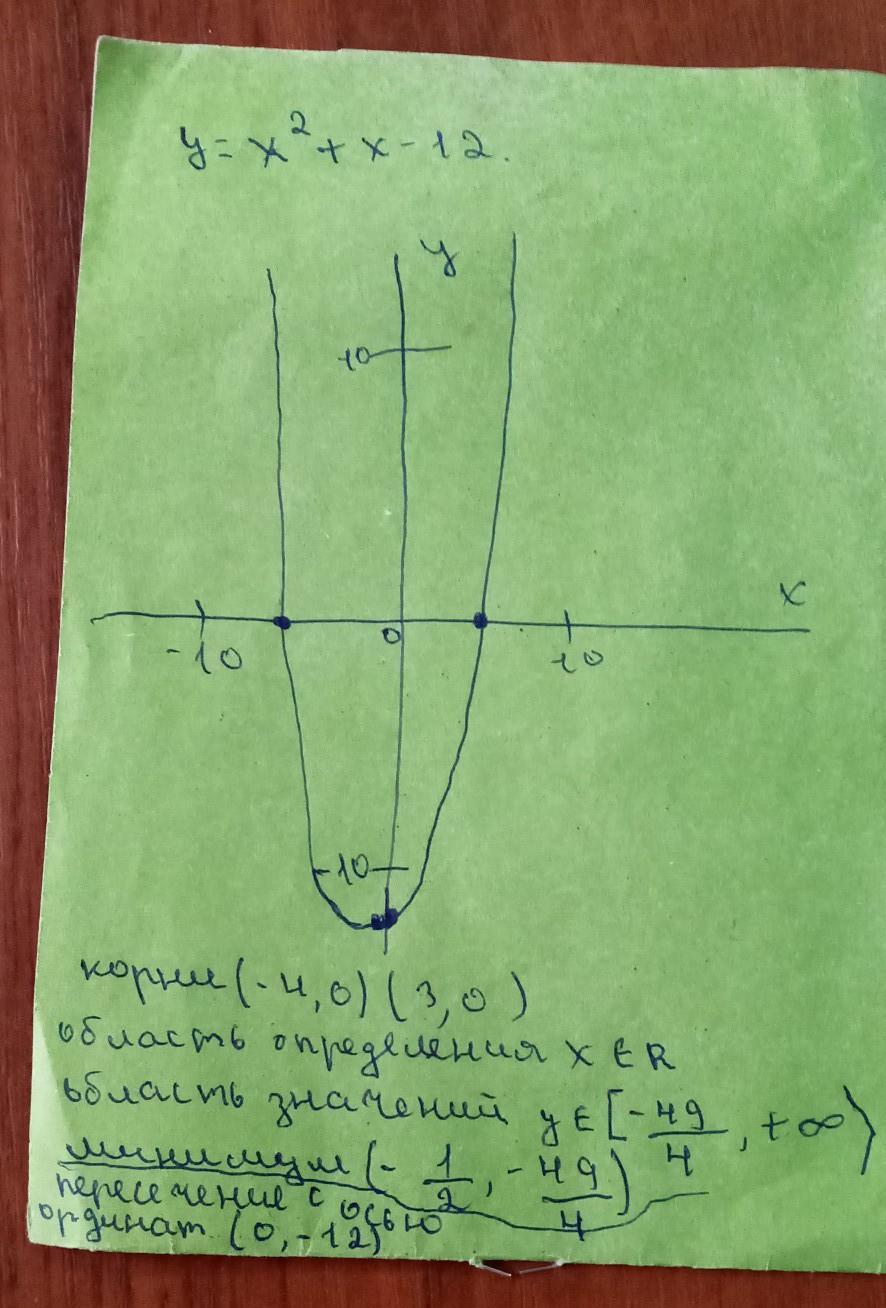 y = x² + x - 12.
y
10
x
-10
0
10
-10
корни (-4,0) (3,0)
область определения x ∈ R
область значений y ∈ [-49/4, +∞)
минимум (-1/2, -49/4)
пересечение с осью
ординат (0, -12)